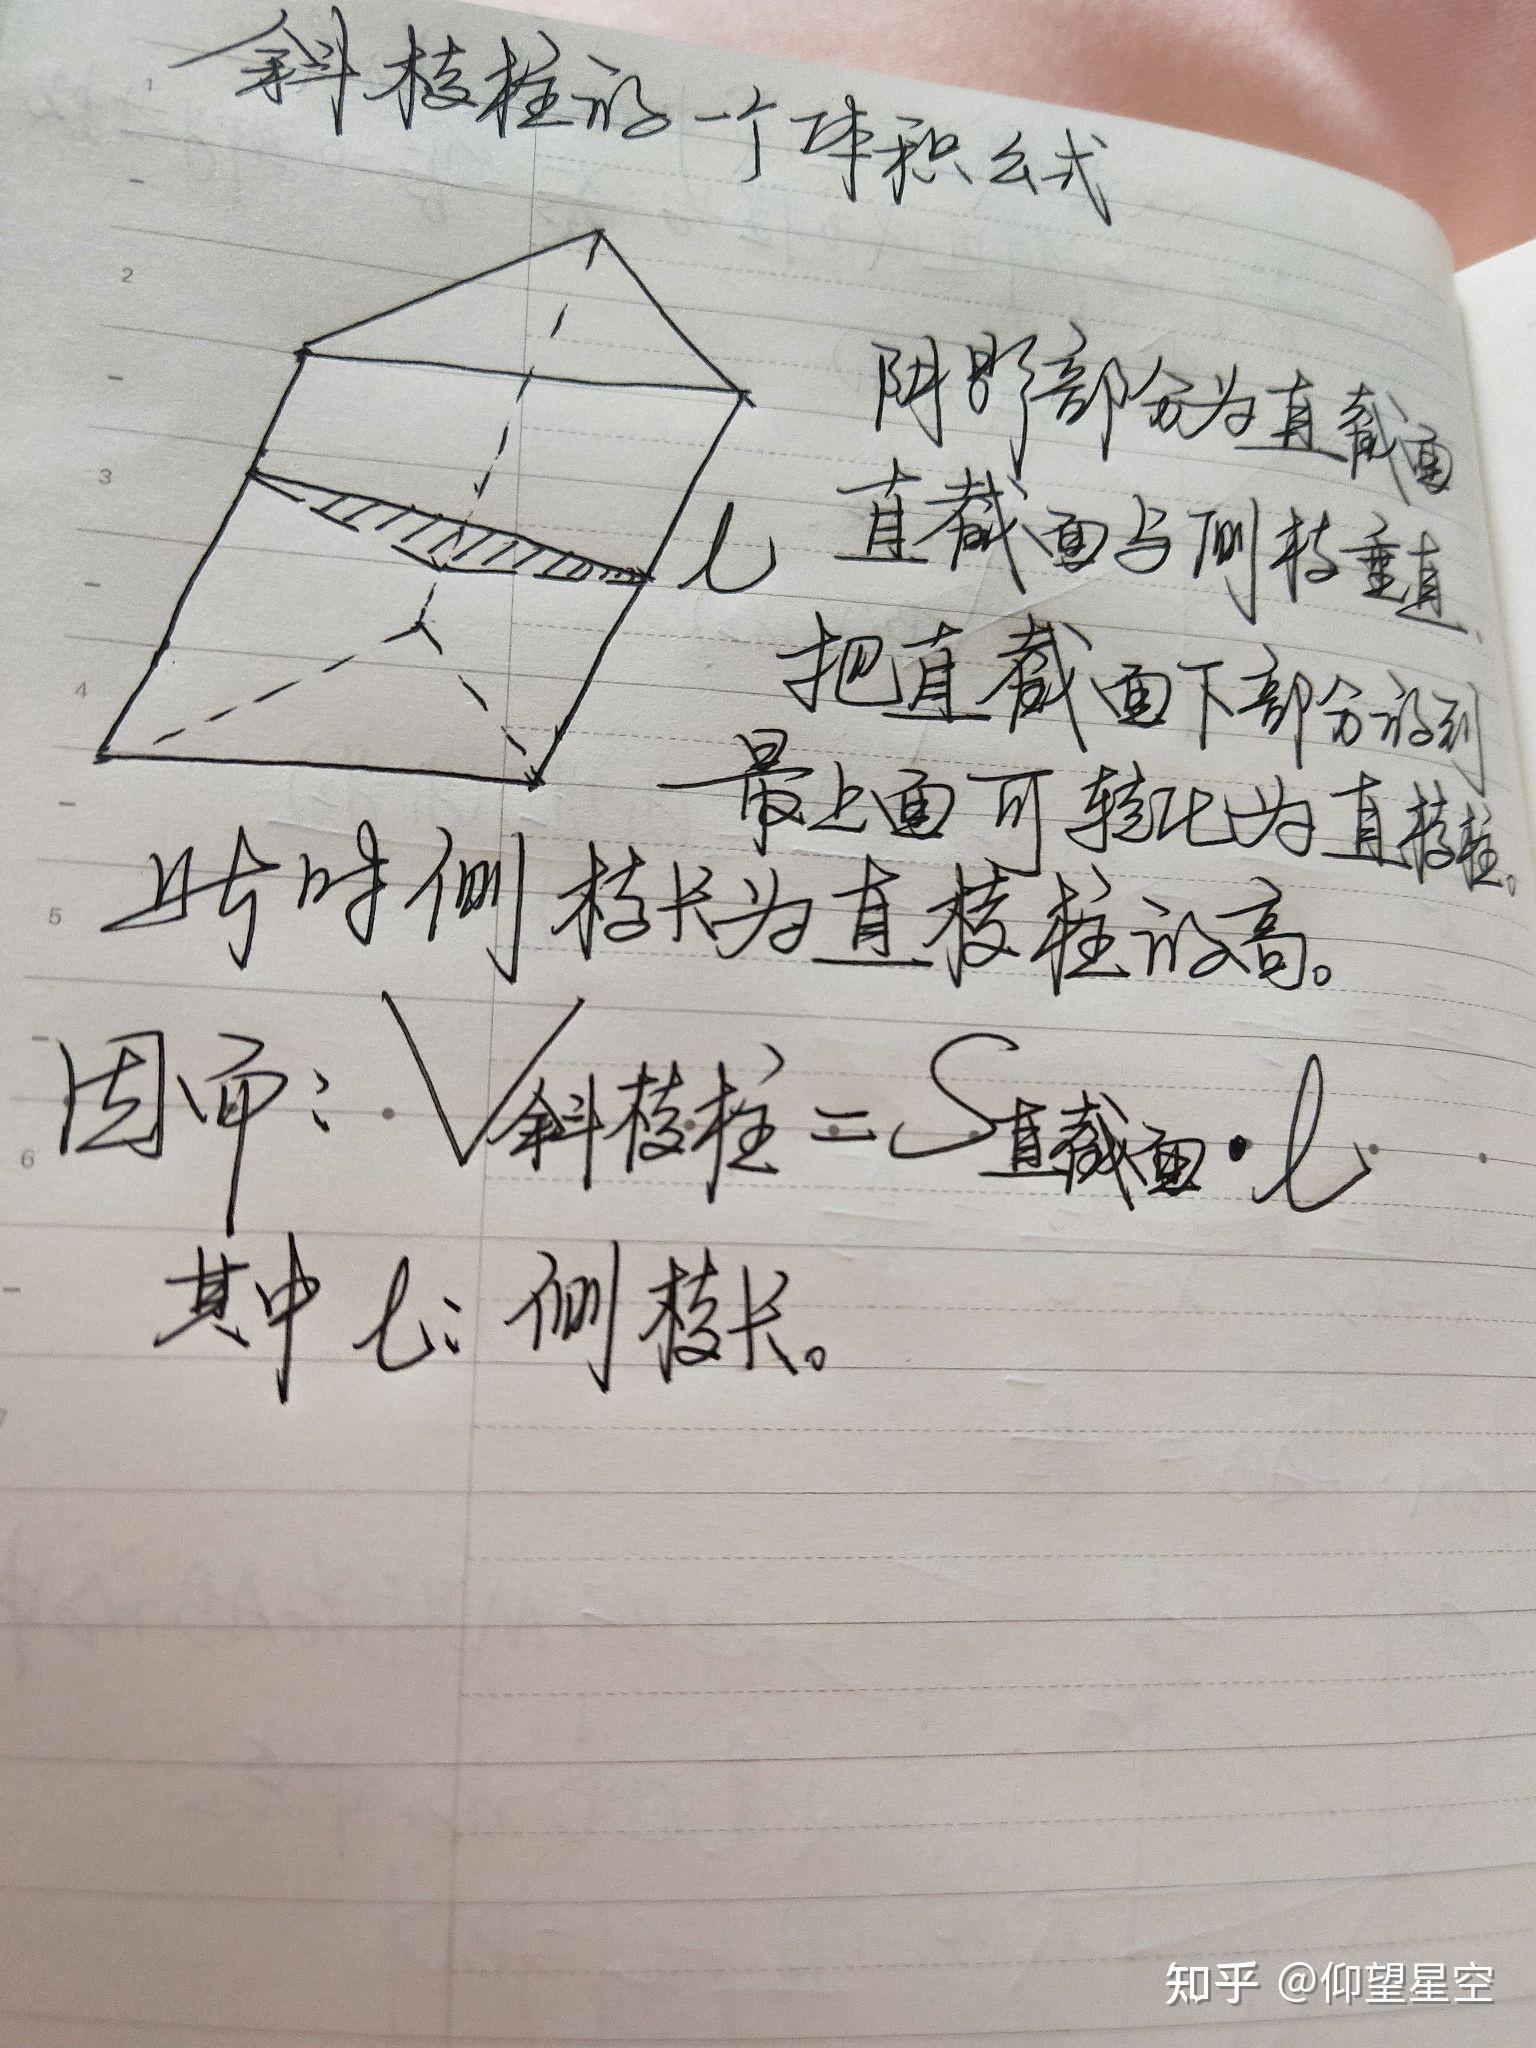 斜棱柱的一个体积公式
阴影部分为直截面
直截面与侧棱垂直.
l
把直截面下部分放到
最上面可转化为直棱柱。
此时侧棱长为直棱柱的高。
因而: V斜棱柱 = S直截面 · l
其中 l: 侧棱长。
1
2
3
4
5
6
知乎 @仰望星空